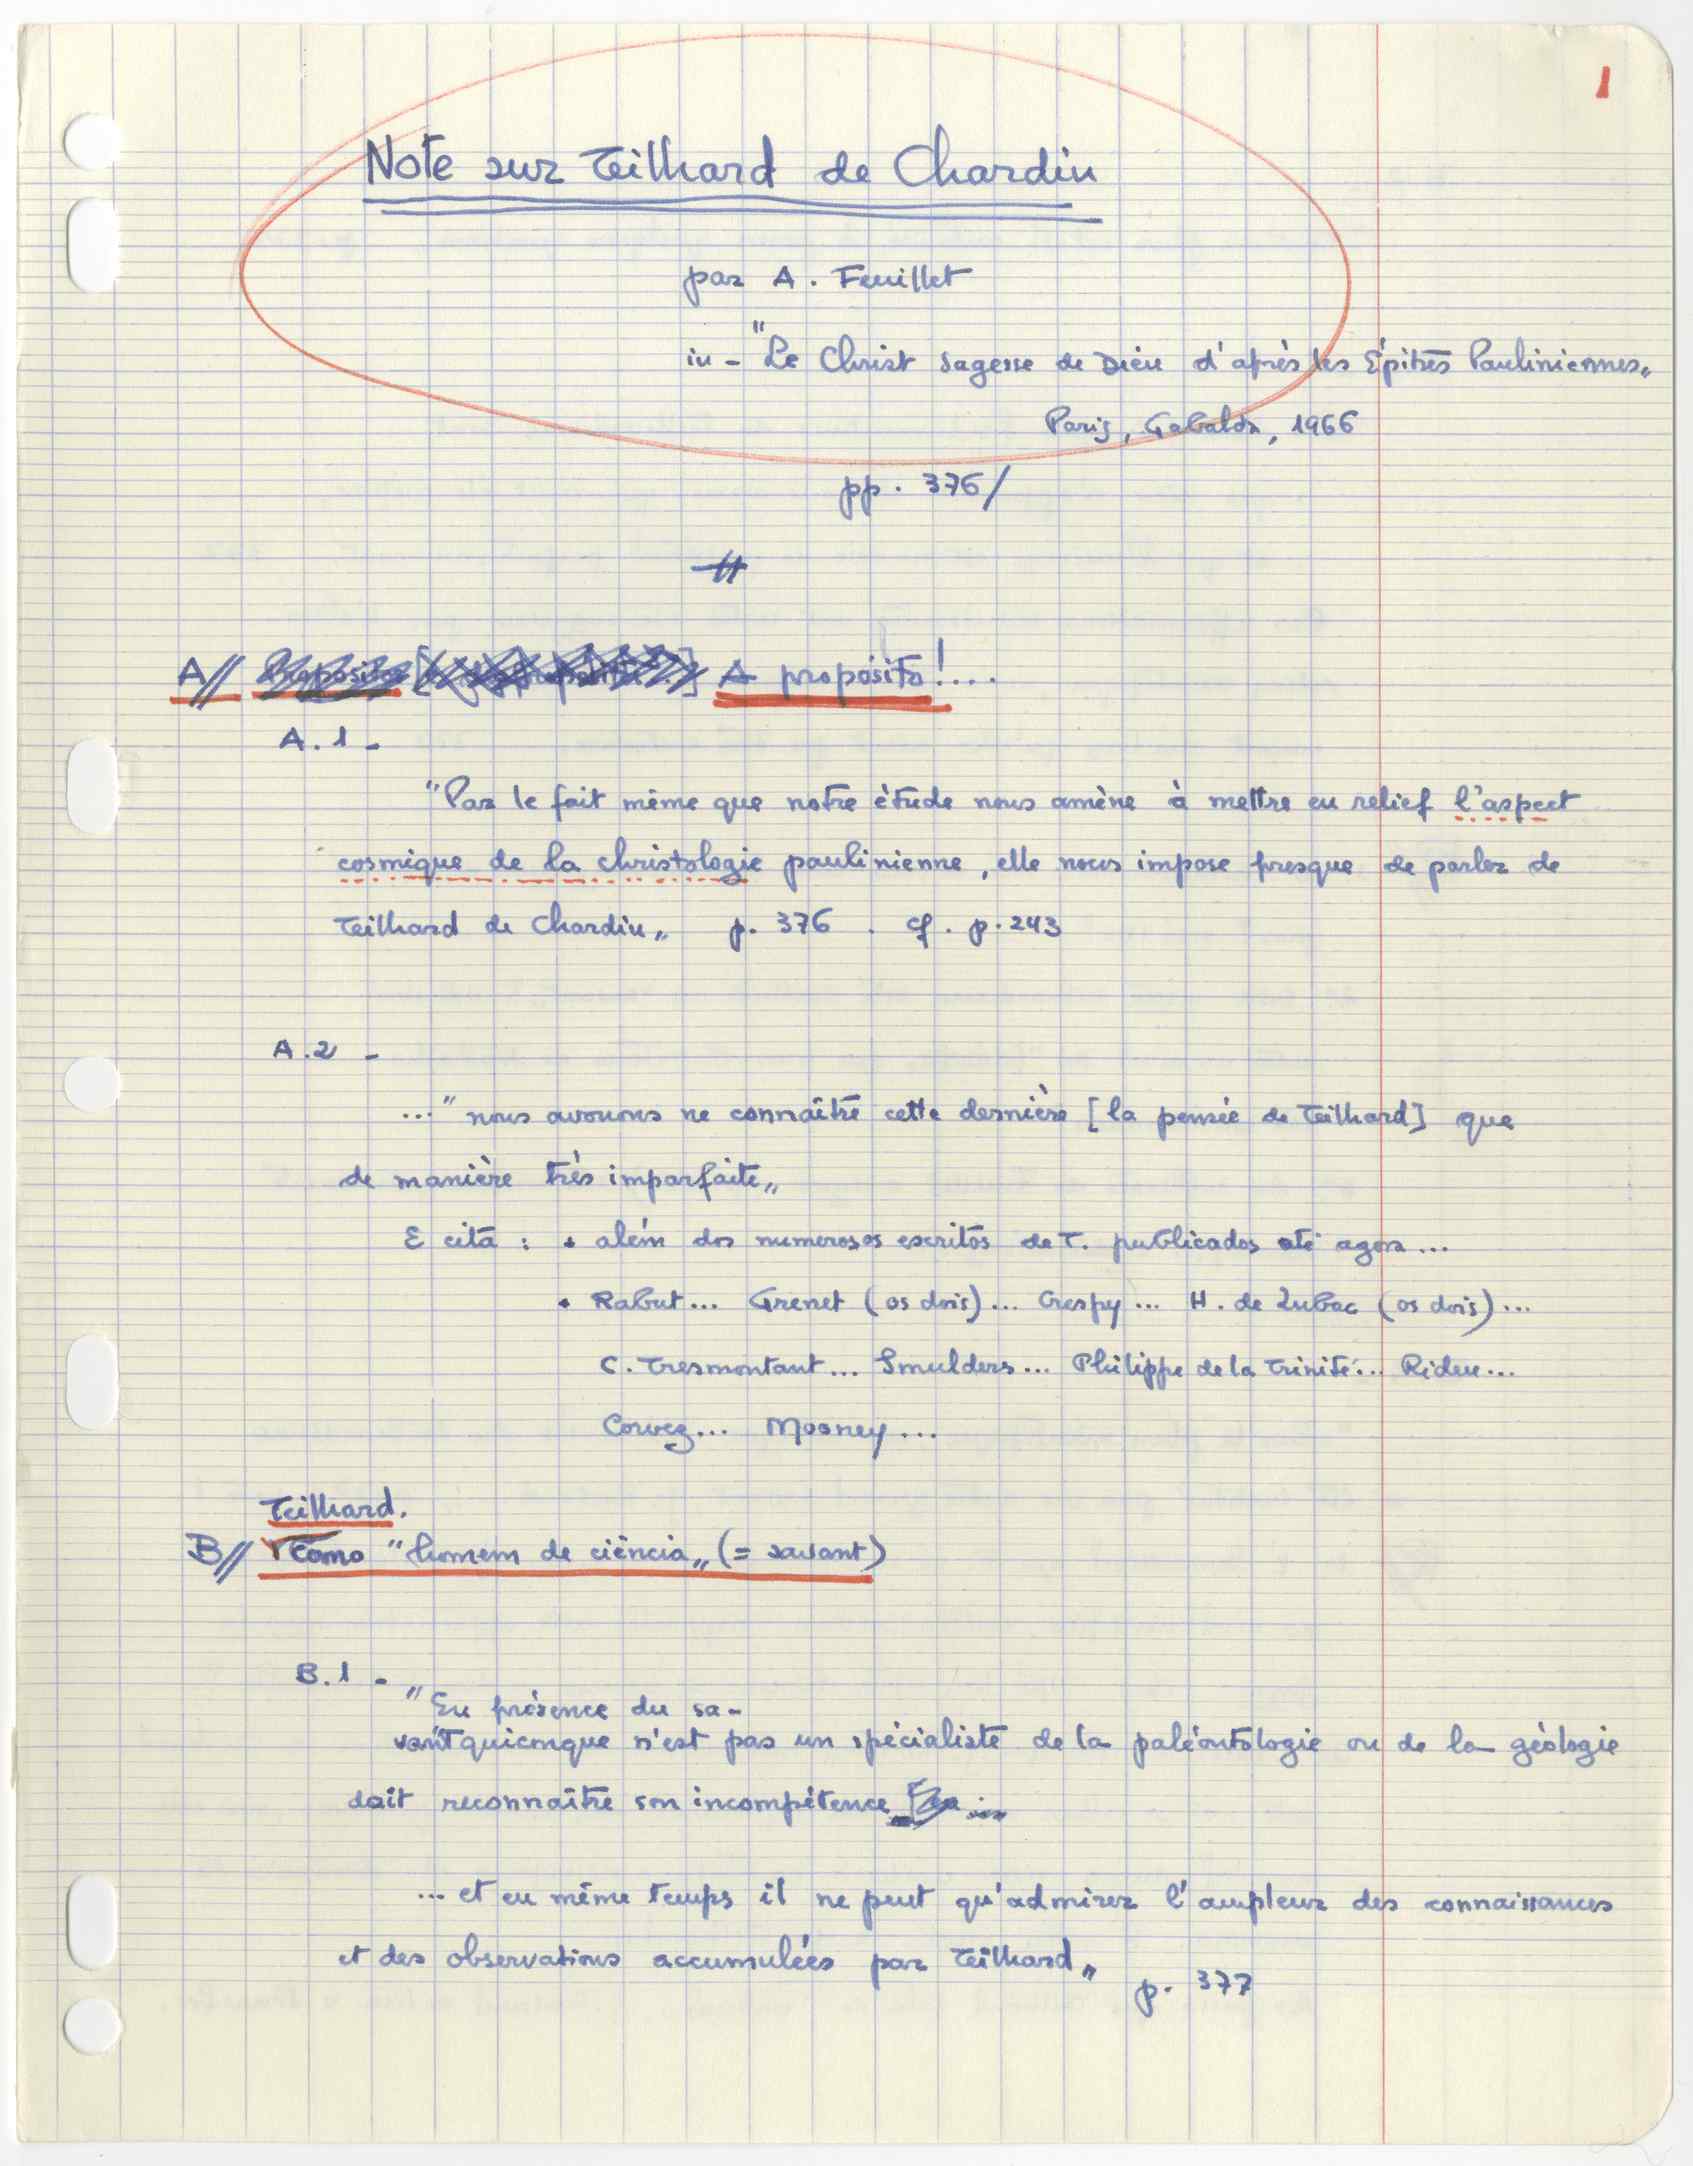 1
Note sur Teilhard de Chardin
par A. Feuillet
in - "Le Christ Sagesse de Dieu d'après les Épitres Pauliniennes„
Paris, Gabalda, 1966
pp. 376/
A// A propósito!...
A.1 -
"Par le fait même que notre étude nous amène à mettre en relief l'aspect
cosmique de la christologie paulinienne, elle nous impose presque de parler de
Teilhard de Chardin„ p. 376 . cf. p. 243
A.2 -
..." nous avouons ne connaître cette dernière [la pensée de Teilhard] que
de manière très imparfaite„
E cita : • além dos numerosos escritos de T. publicados até agora...
• Rabut... Grenet (os dois)... Crespy... H. de Lubac (os dois)...
C. Tresmontant... Smulders... Philippe de la Trinité... Rideu...
Corvez... Mooney...
Teilhard.
B// Como "homem de ciência„ (= savant)
B.1 - "En présence du sa-
vant quiconque n'est pas un spécialiste de la paléontologie ou de la géologie
doit reconnaître son incompétence ...
... et en même temps il ne peut qu'admirer l'ampleur des connaissances
et des observations accumulées par Teilhard„ p. 377